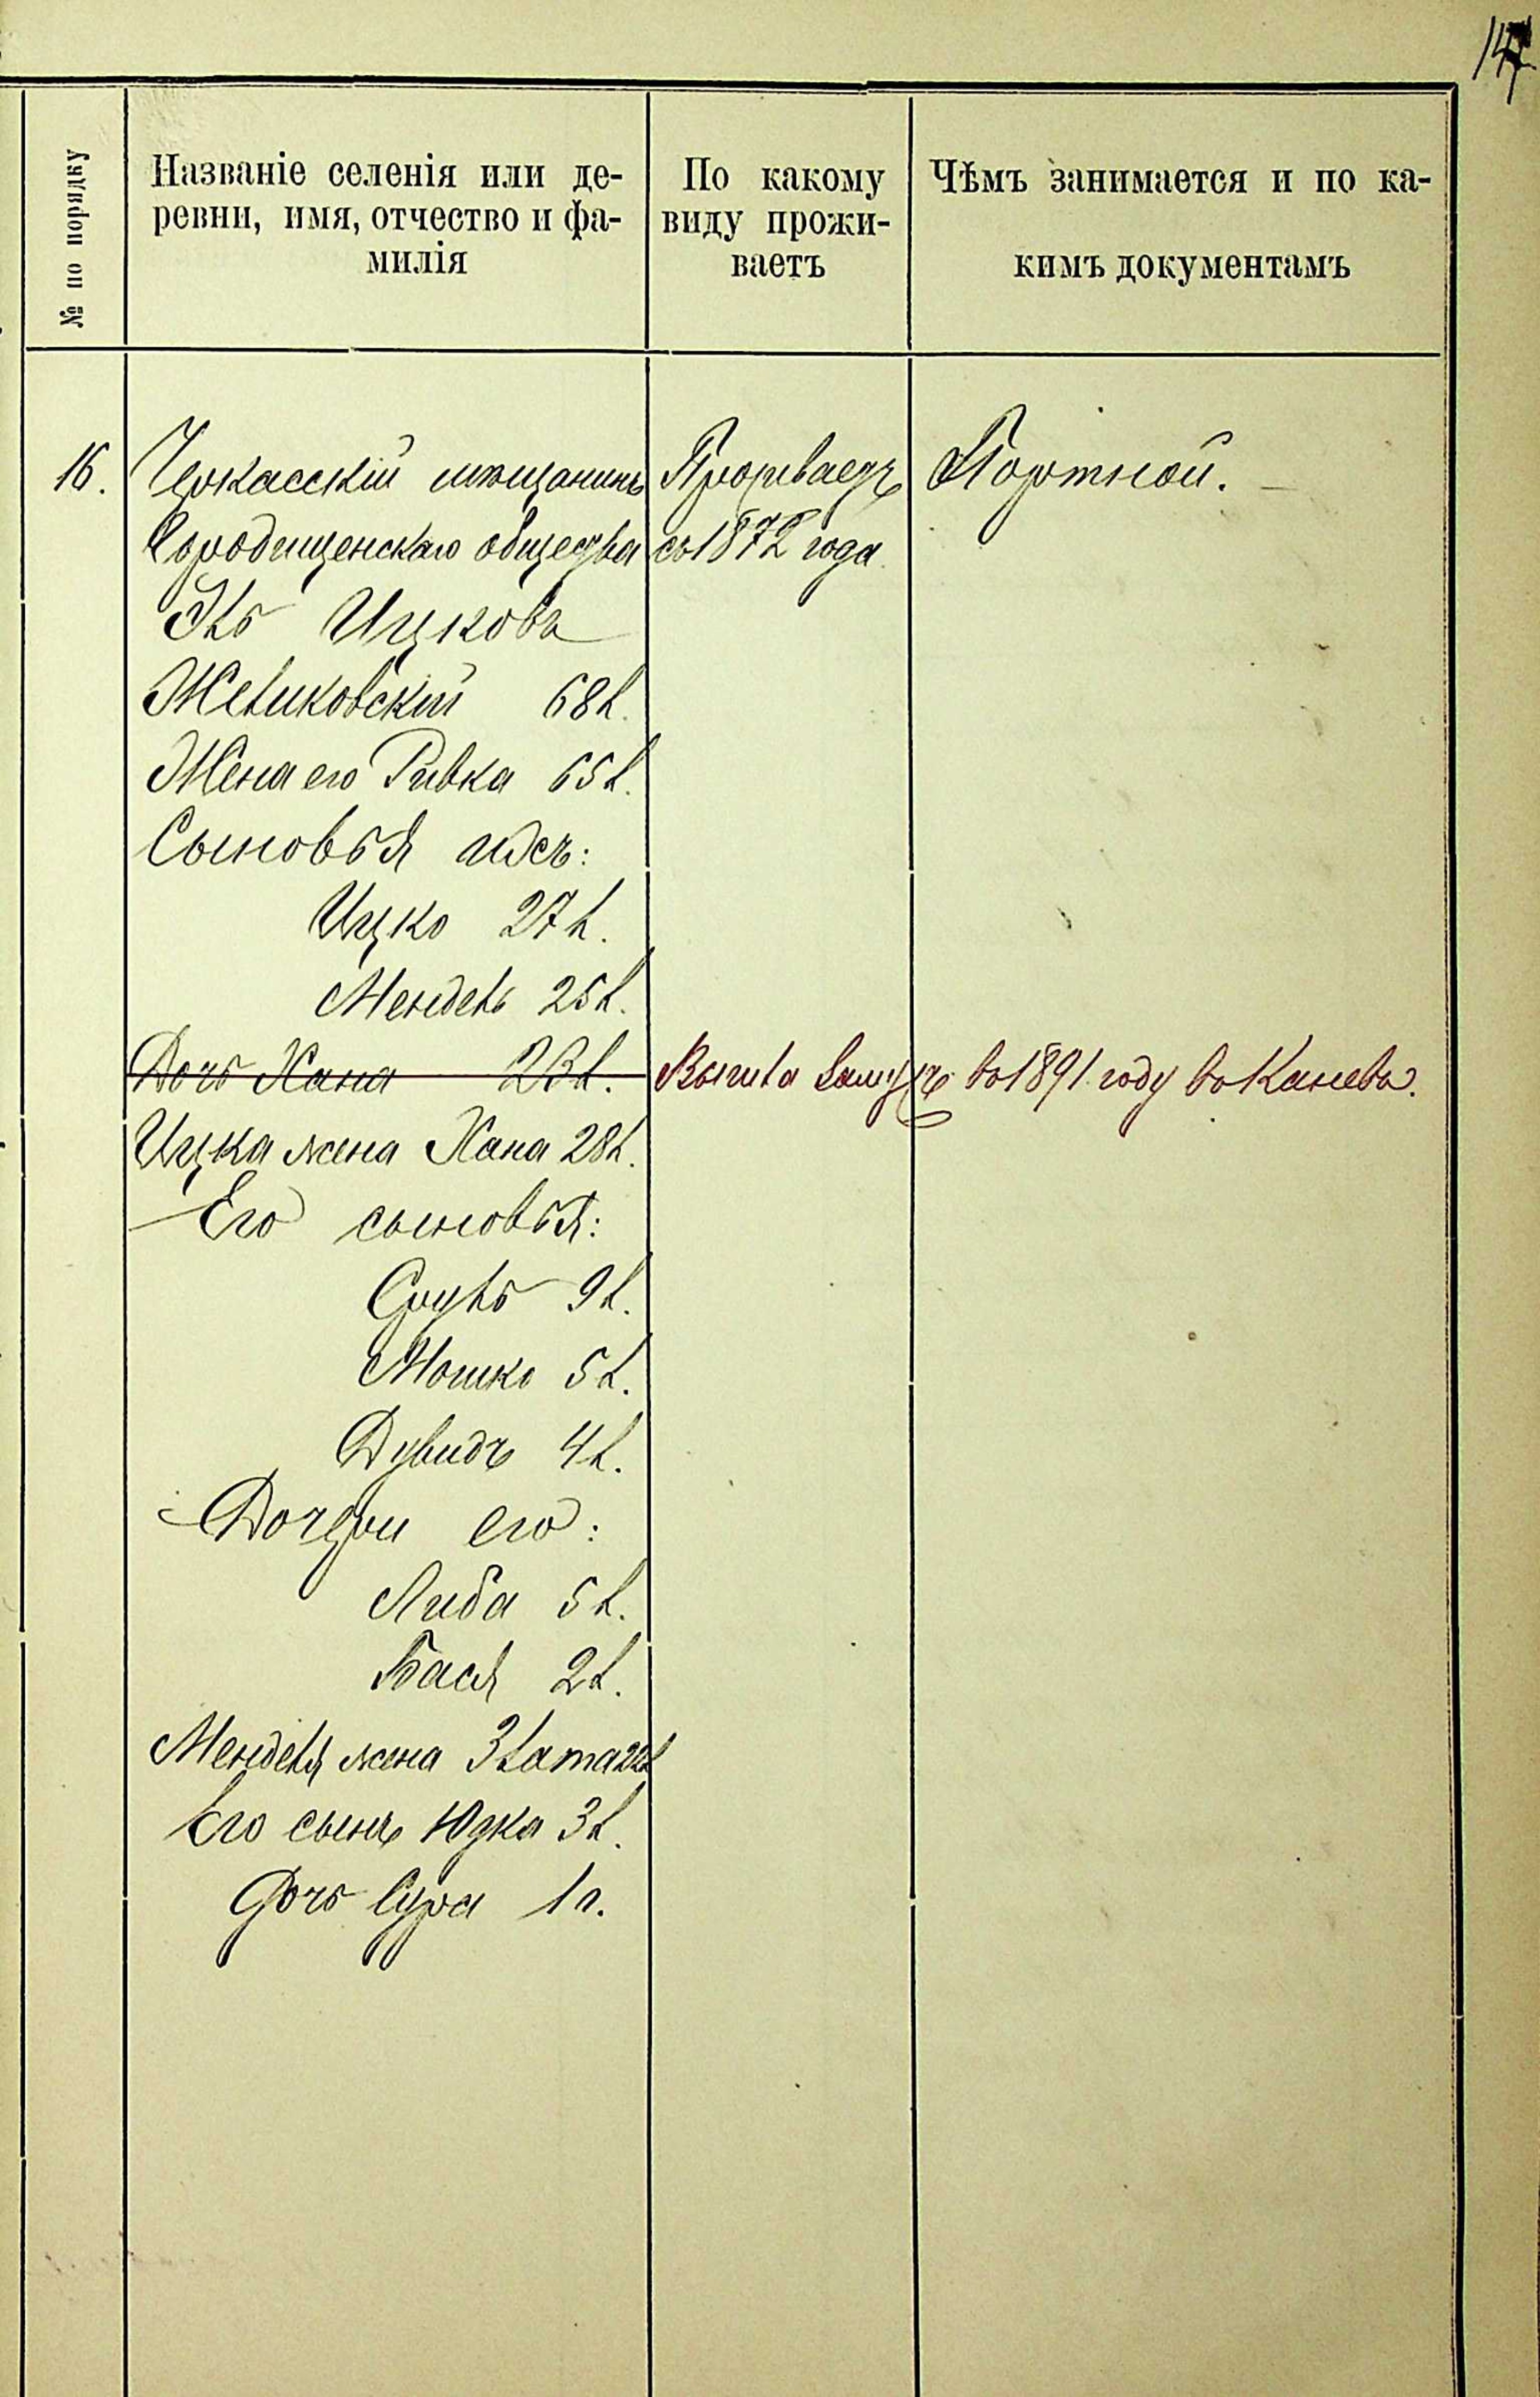 147.
№ по порядку
Названіе селенія или де-
ревни, имя, отчество и фа-
милія
По какому
виду прожи-
ваетъ
Чѣмъ занимается и по ка-
кимъ документамъ
16.
Черкасскій мѣщанинъ
Городищенскаго общества
Эль Ицковъ
Желиковскій 68 л.
Жена его Ривка 65 л.
Сыновья ихъ:
Ицко 27 л.
Мендель 25 л.
Дочь Хана 23 л.
Ицка жена Хана 28 л.
Его сыновья:
Сруль 9 л.
Мошко 5 л.
Дувидъ 4 л.
Дочери его:
Либа 5 л.
Бася 2 л.
Менделя жена Злата 22 л
Его сынъ Юдка 3 л.
Дочь Сура 1 г.
Проживаетъ
съ 1872 года
Портной.
Вышла замужъ въ 1891 году въ Каневъ.